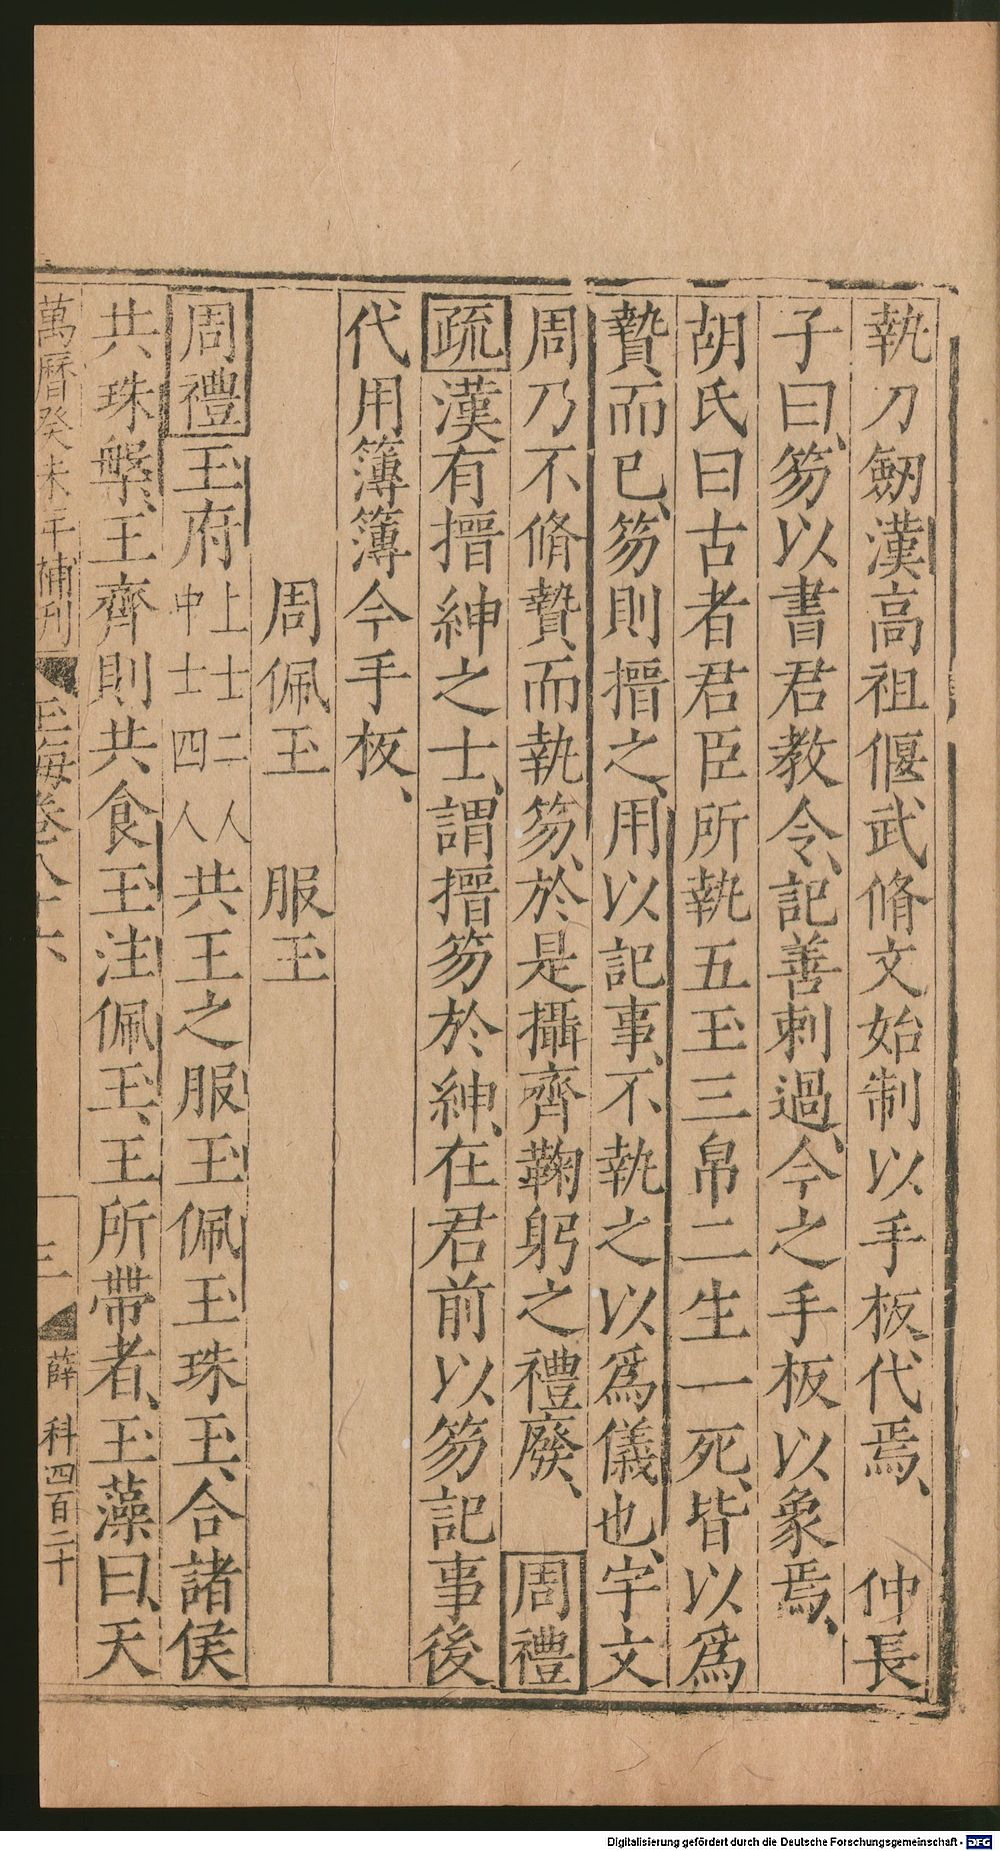 執刀劒漢高祖偃武脩文始制以手板代焉、　仲長
子曰、笏以書君教令、記善刺過、今之手板以象焉、
胡氏曰古者君臣所執五玉三帛二生一死、皆以爲
贄而已、笏則搢之、用以記事、不執之以爲儀也、宇文
周乃不脩贄而執笏、於是攝齊鞠躬之禮廢、　周禮
疏漢有搢紳之士、謂搢笏於紳、在君前以笏記事後
代用簿簿今手板、
周佩玉　服玉
周禮玉府上士二人中士四人共王之服玉佩玉珠玉、合諸侯
共珠槃、王齊則共食玉注佩玉、王所帶者、玉藻曰、天
萬曆癸未年補刊　玉海卷八十六　三　薛　科四百二十
Digitalisierung gefördert durch die Deutsche Forschungsgemeinschaft - DFG